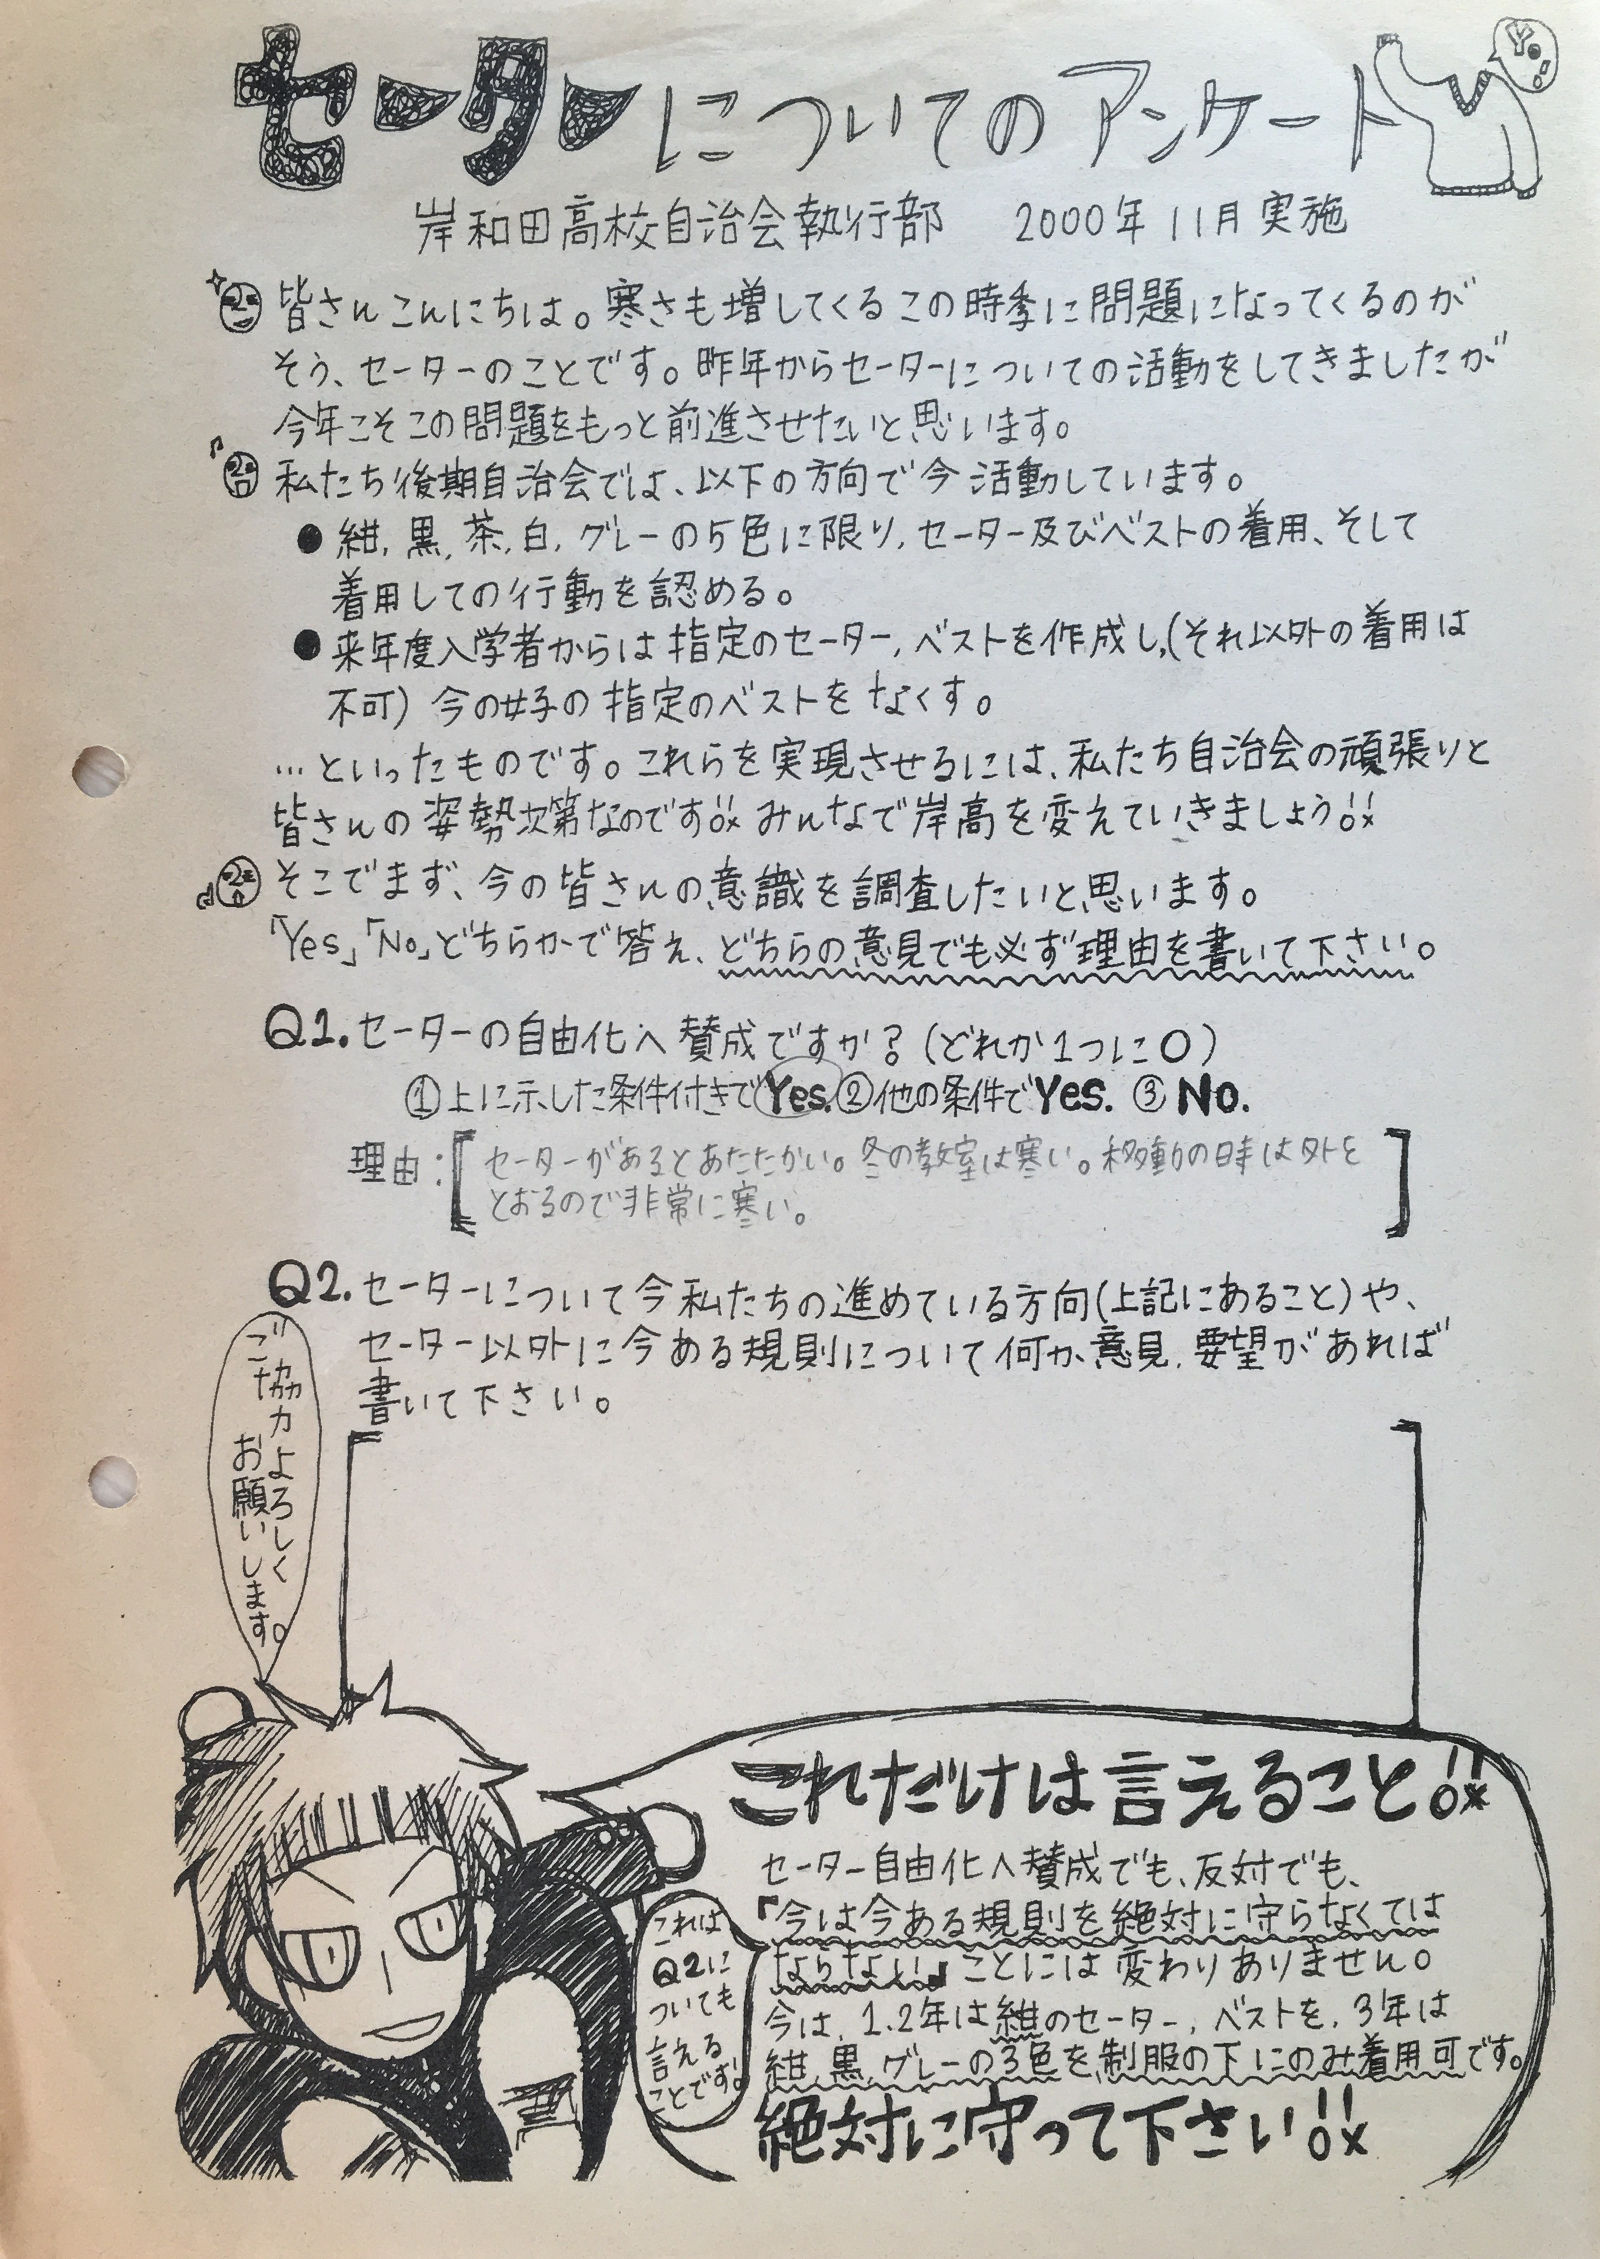 セーターについてのアンケート
岸和田高校自治会執行部　2000年11月実施
皆さんこんにちは。寒さも増してくるこの時季に問題になってくるのが
そう、セーターのことです。昨年からセーターについての活動をしてきましたが
今年こそこの問題をもっと前進させたいと思います。
私たち後期自治会では、以下の方向で今活動しています。
●紺,黒,茶,白,グレーの5色に限り,セーター及びベストの着用、そして
着用しての行動を認める。
●来年度入学者からは指定のセーター,ベストを作成し,(それ以外の着用は
不可)今の女子の指定のベストをなくす。
…といったものです。これらを実現させるには、私たち自治会の頑張りと
皆さんの姿勢次第なのです!! みんなで岸高を変えていきましょう!!
そこでまず、今の皆さんの意識を調査したいと思います。
「Yes」「No」どちらかで答え、どちらの意見でも必ず理由を書いて下さい。
Q1.セーターの自由化へ賛成ですか?(どれか1つに○)
①上に示した条件付きでYes.②他の条件でYes. ③No.
理由:[セーターがあるとあたたかい。冬の教室は寒い。移動の時は外を
とおるので非常に寒い。]
Q2.セーターについて今私たちの進めている方向(上記にあること)や、
セーター以外に今ある規則について何か意見,要望があれば
書いて下さい。
ご協力よろしく
お願いします。
これだけは言えること!!
セーター自由化へ賛成でも、反対でも、
『今は今ある規則を絶対に守らなくては
ならない』ことには変わりありません。
今は,1.2年は紺のセーター,ベストを,3年は
紺,黒,グレーの3色を制服の下にのみ着用可です。
絶対に守って下さい!!
これは
Q2に
ついても
言える
ことです。